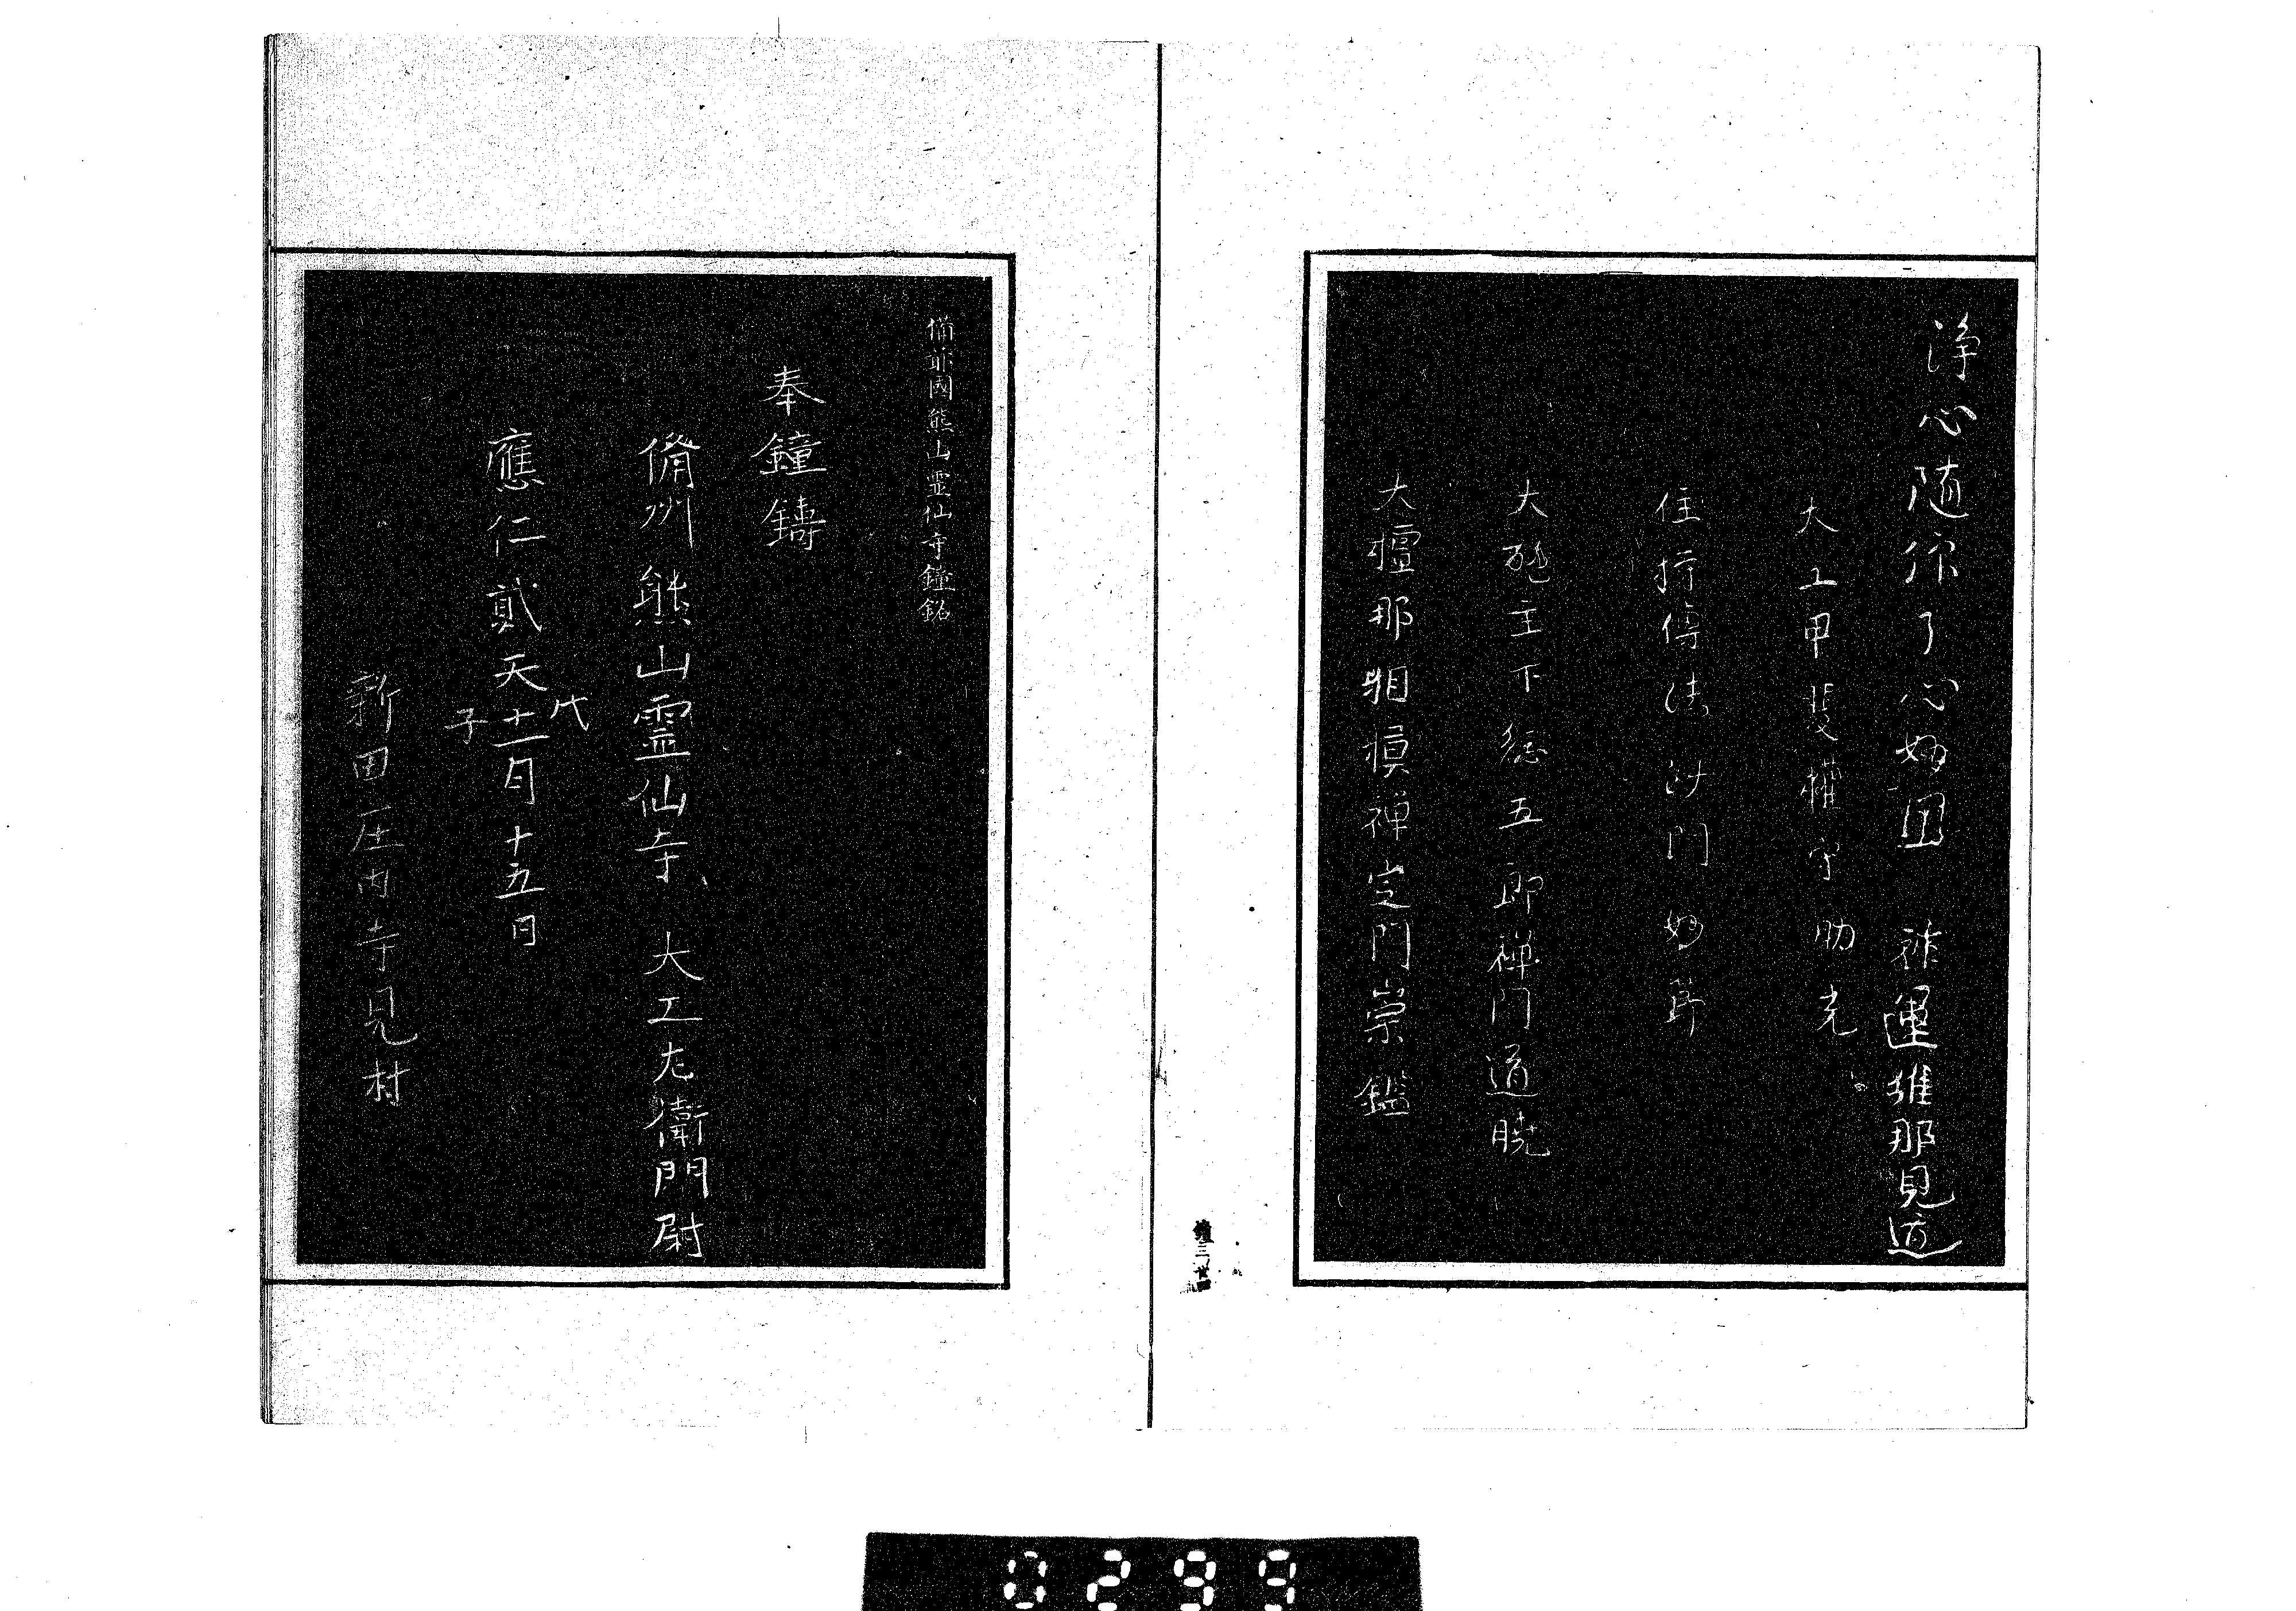 浄心随你了心妙困 祚運維那見透
大工甲斐權守助光
住持傳法沙門妙節
大施主下総五郎禅門道暁
大檀那相模禅定門崇鑑
鐘三 廿四
備前國熊山霊仙寺鐘銘
奉鐘鋳
俻州熊山霊仙寺、大工左衛門尉
應仁貳天戊子十二月十五日
新田庄内寺見村
0299